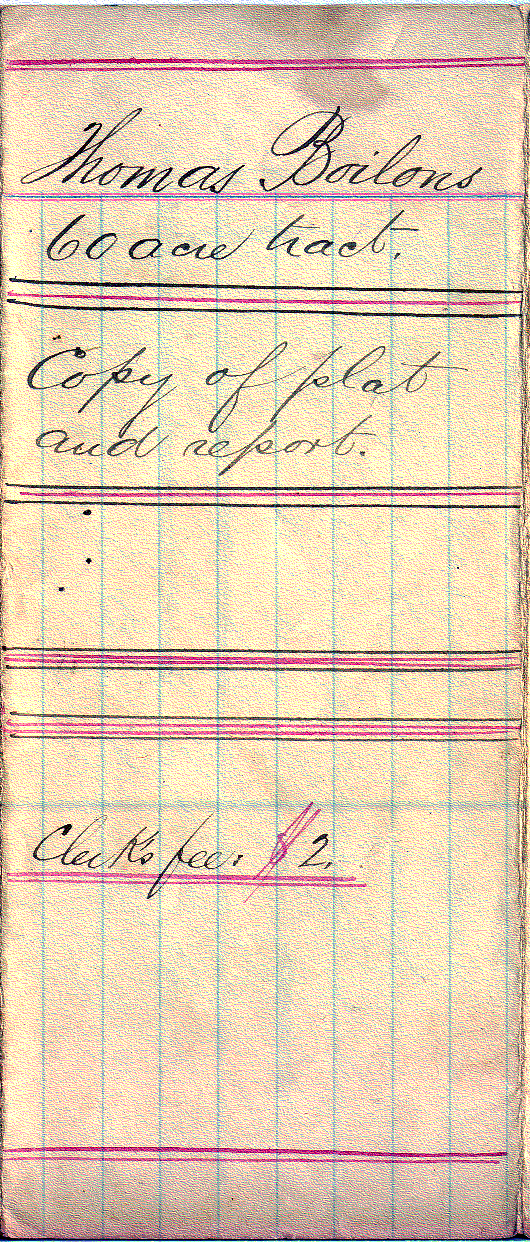 Thomas Boilons
60 acre tract.
Copy of plat
and report.
Clerk's fee: $2.